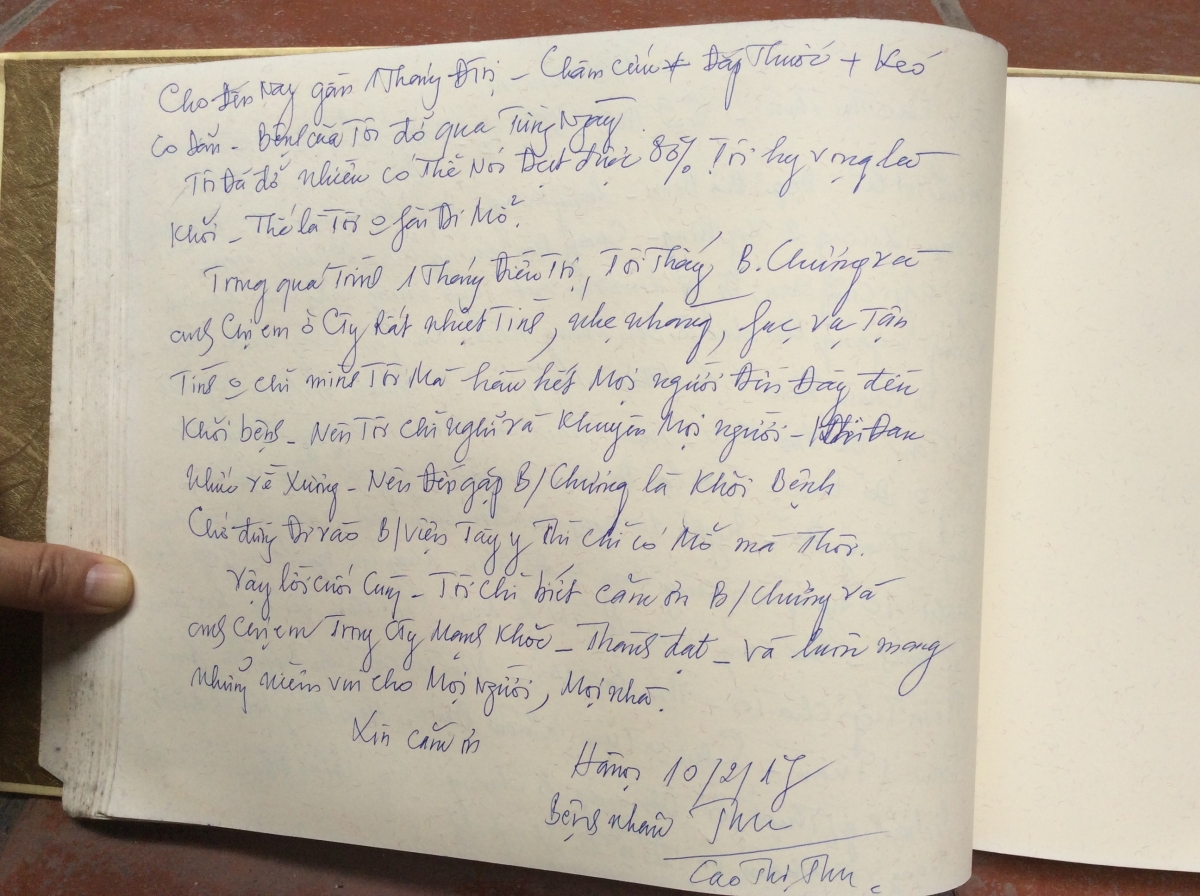 Cho đến Nay gần 1 Tháng Điều Trị - Châm cứu + Đắp Thuốc + Kéo
Co Dãn - Bệnh của Tôi đỡ qua Từng Ngày
Tôi Đã đỡ nhiều có Thể Nói Đạt được 80% Tôi hy vọng là
Khỏi - Thế là Tôi o phải Đi Mổ.
Trong quá Trình 1 Tháng Điều Trị, Tôi Thấy B. Chường và
anh Chị em ở Cty Rất nhiệt Tình, nhẹ nhàng, phục vụ Tận
Tình o chỉ mình Tôi Mà hầu hết Mọi người Đến Đây đều
Khỏi bệnh - Nên Tôi chỉ nghĩ và Khuyên Mọi người - Đau
Nhức về Xương - Nên Đến gặp B/Chường là Khỏi Bệnh
Chớ đừng Đi vào B/Viện Tây y Thì chỉ có Mổ mà Thôi.
Vậy lời cuối Cùng - Tôi Chỉ biết cảm ơn B/Chường và
anh chị em Trong Cty Mạnh Khỏe - Thành đạt - và luôn mang
những niềm vui cho Mọi Người, Mọi nhà.
Xin cảm ơn
Hà nội 10/2/17
Bệnh nhân Thu
Cao Thị Thu